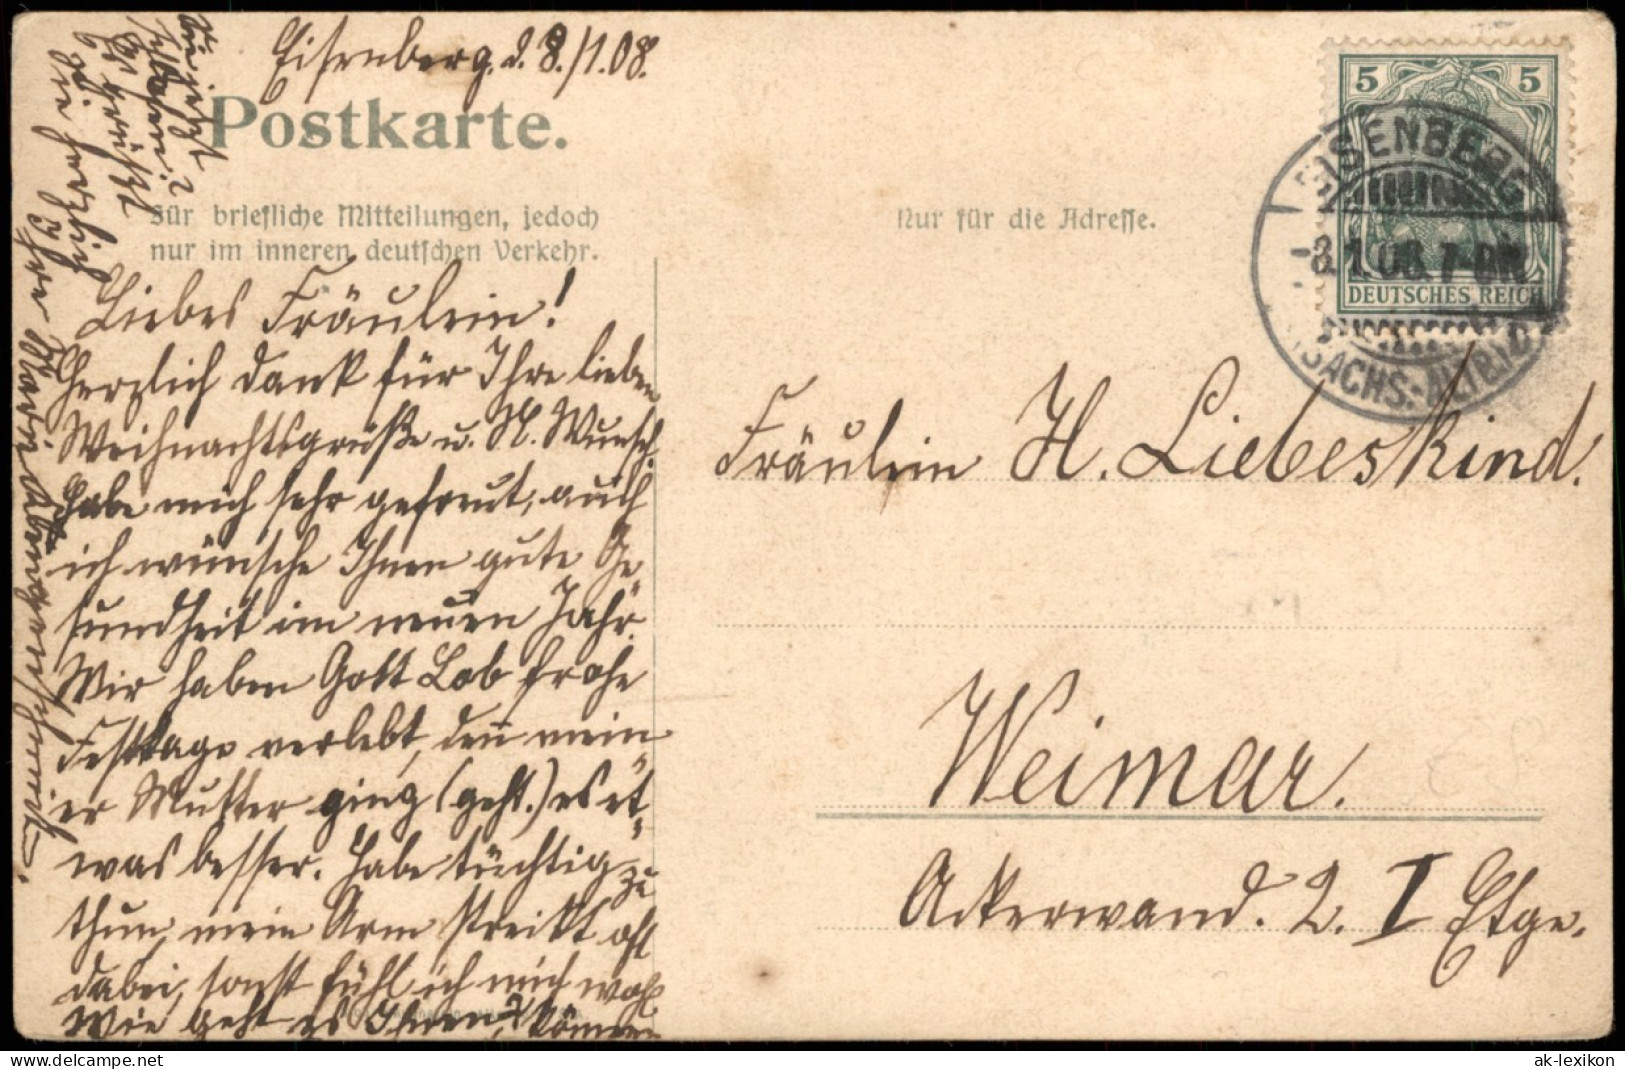 Eisenberg, d. 8./1.08.
Postkarte.
Für briefliche Mitteilungen, jedoch
nur im inneren deutschen Verkehr.
Nur für die Adresse.
5 5
DEUTSCHES REICH
EISENBERG
8.1.08.7-8N
(SACHS.-ALTBG.)
Liebes Fräulein!
Herzlich Dank für Ihre lieben
Weihnachtsgrüße u. N. Wunsch.
Habe mich sehr gefreut, auch
ich wünsche Ihnen gute Ge-
sundheit im neuen Jahr.
Wir haben Gott Lob frohe
Festtage verlebt, den̄ mein
er Mutter ging (geht.) es et-
was besser. Habe tüchtig zu
thun, mein Arm streikt oft
dabei, sonst fühl ich mich wohl
Wie geht es Ihnen, können
Sie jetzt
schlafen?
Es grüßt
Sie herzlich
Ihre Marie
Fräulein H. Liebeskind.
Weimar.
Ackerwand. 2. I Etge.
ak-lexikon